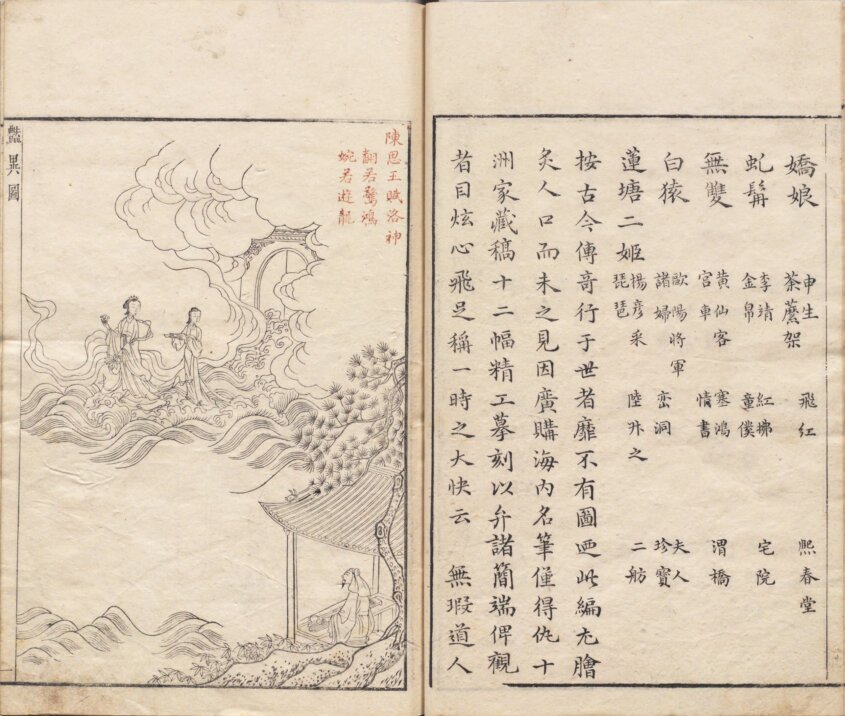 嬌娘 申生 飛紅 熙春堂
荼蘼架
虬髯 李靖 紅拂 宅院
金帛 童僕
無雙 黄仙客 塞鴻 渭橋
宮車 情書
白猿 歐陽將軍 夫人
諸婦 蛮洞 珍寶
蓮塘二姬 楊彦采 陸升之 二舫
琵琶
按古今傳奇行于世者靡不有圖迺此編尤膾
炙人口而未之見因廣購海内名筆僅得仇十
洲家藏稿十二幅精工摹刻以弁諸簡端俾觀
者目炫心飛足稱一時之大快云 無瑕道人
陳思王賦洛神
翩若驚鴻
婉若遊龍
豓異圖